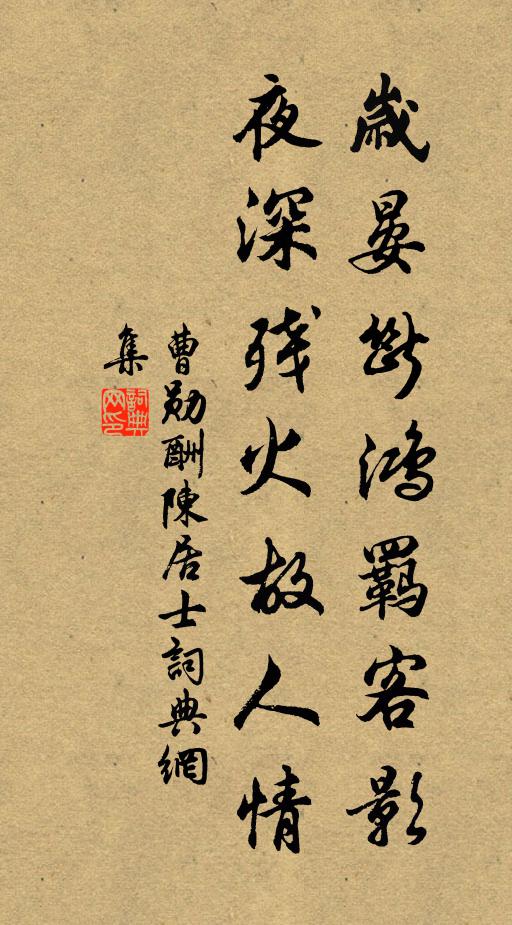 歲晏斷鴻羈客影
夜深残火故人情
曹勛酬陳居士詞典網
集
詞典
网印